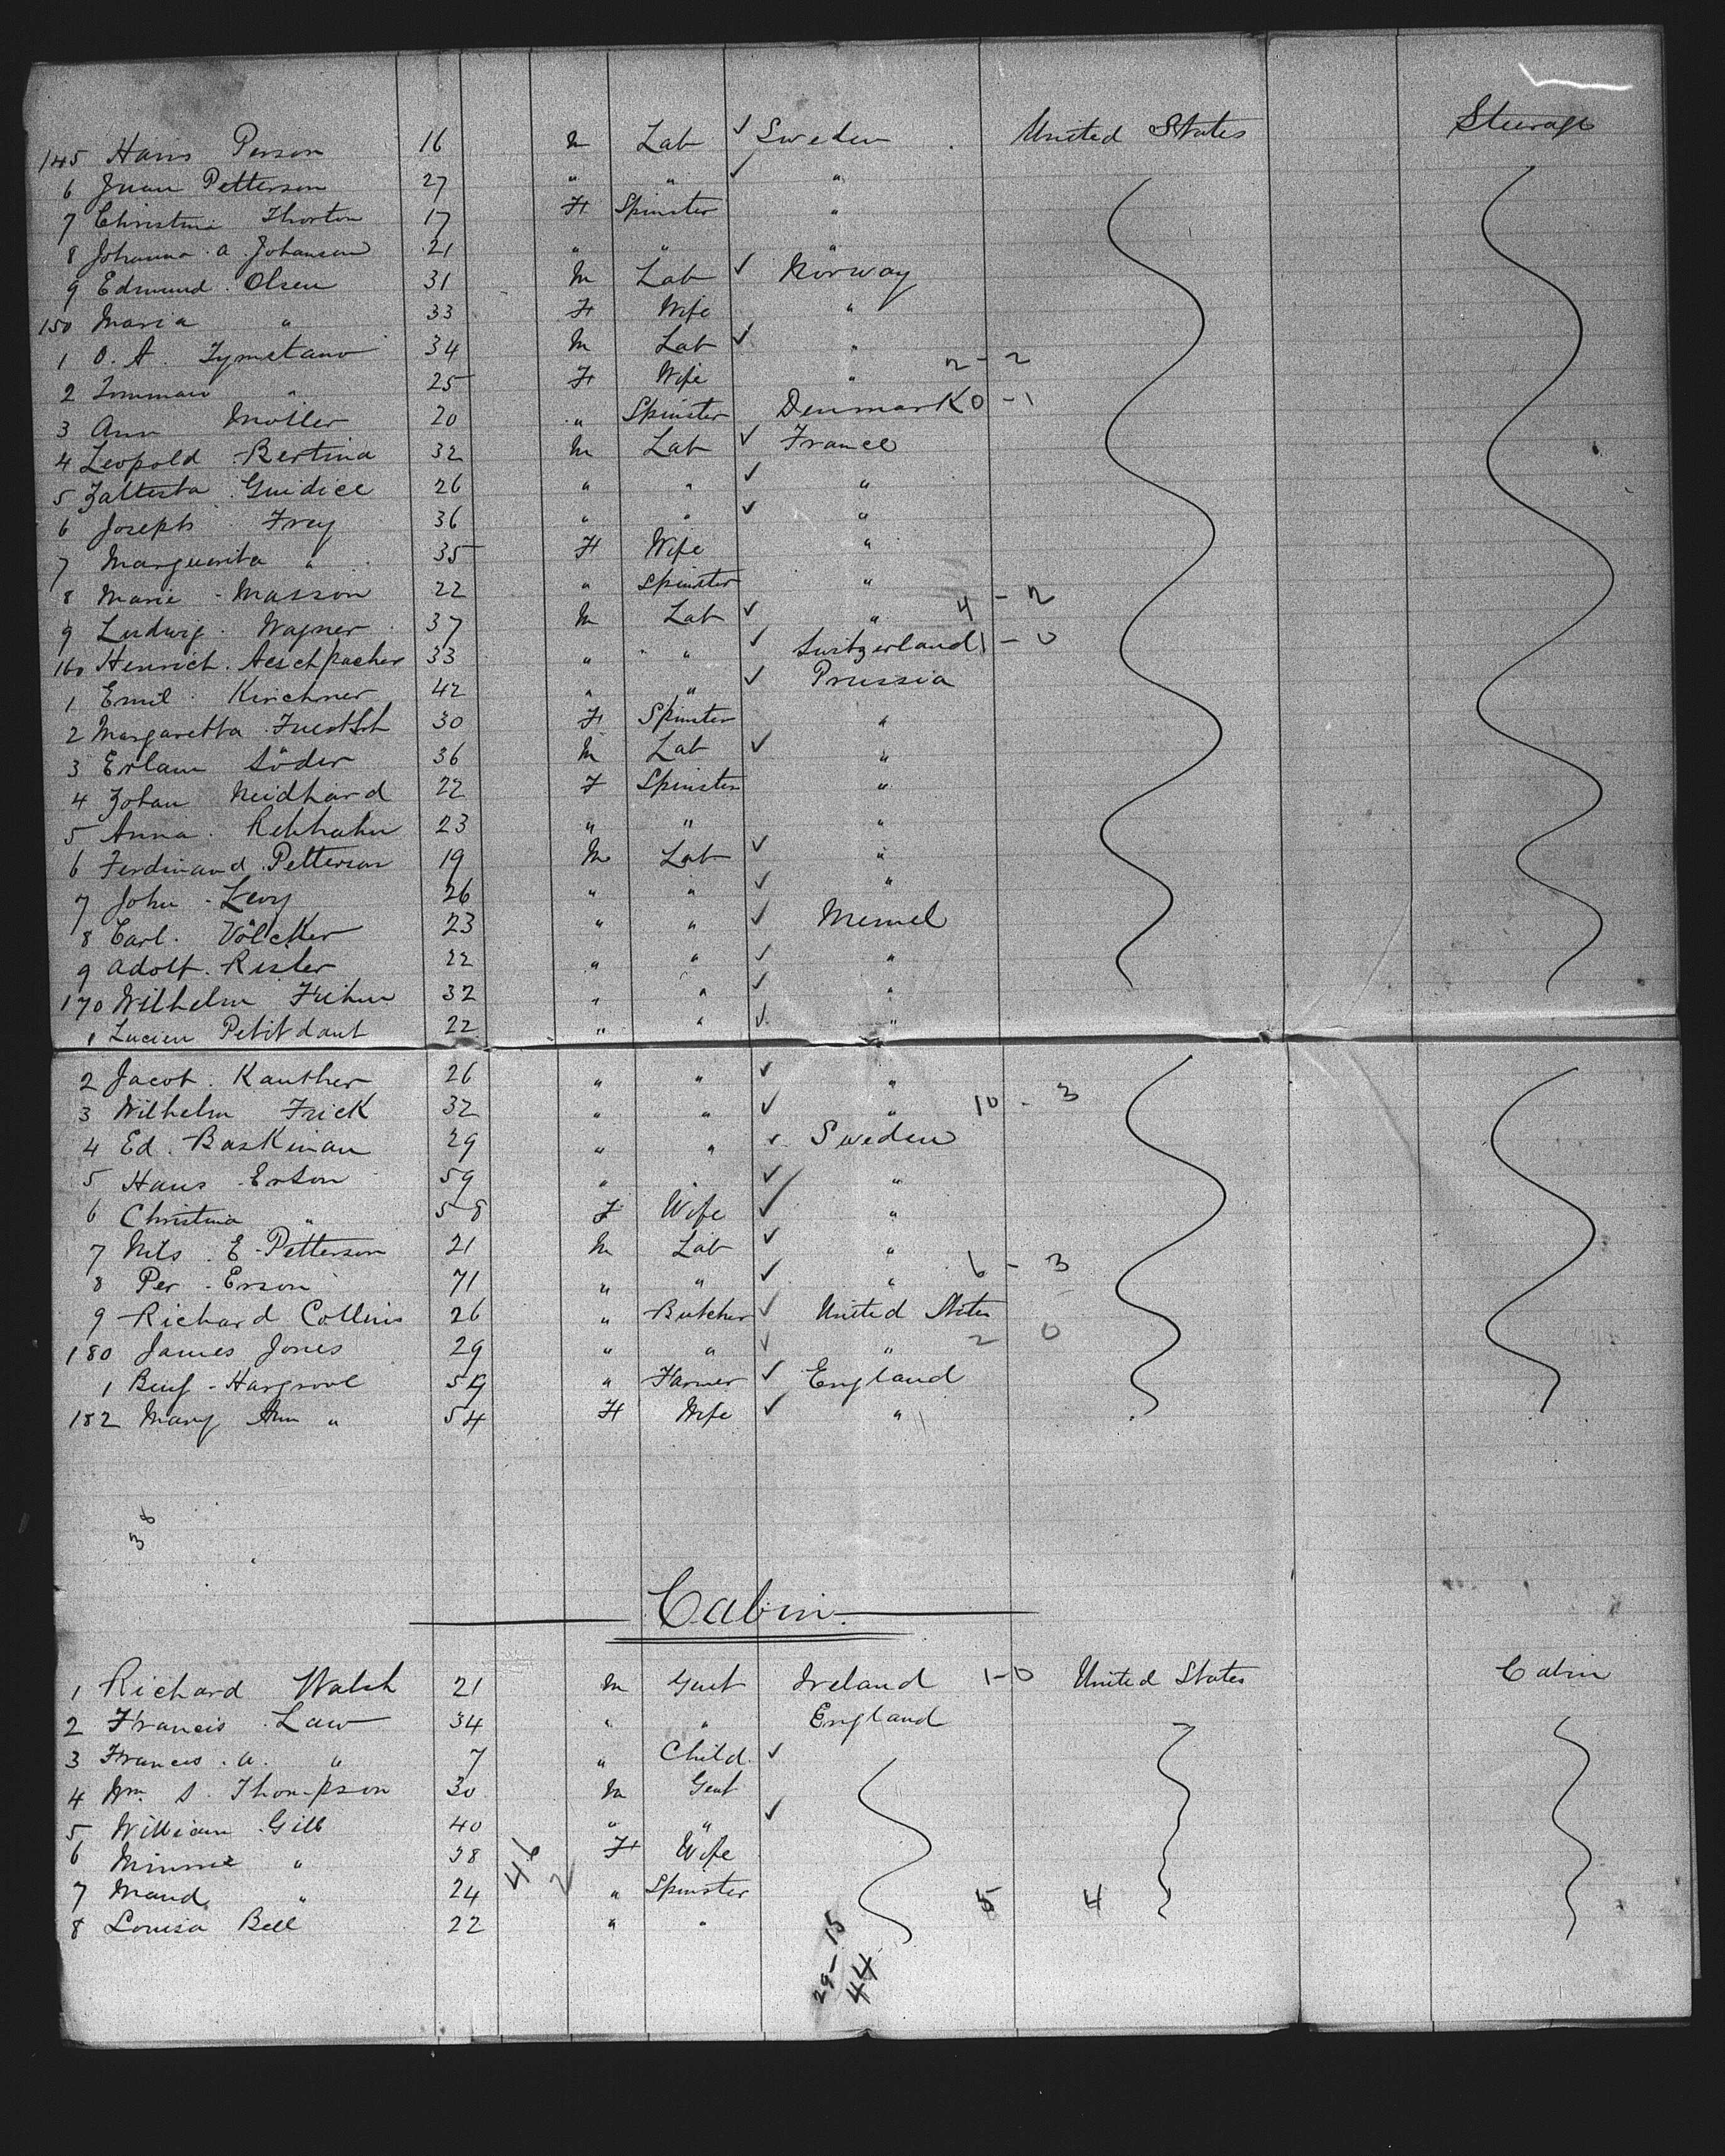 145 Hans Person 16 M Lab ✓ Sweden United States Steerage
6 Juan Petterson 27 " " ✓ "
7 Christina Thorton 17 F Spinster "
8 Johanna A Johanson 21 " " "
9 Edmund Olsen 31 M Lab ✓ Norway
150 Maria " 33 F Wife "
1 O. A. 34 M Lab ✓ "
2 " 25 F Wife " 2 - 2
3 Ann Moller 20 " Spinster Denmark 0 - 1
4 Leopold Bertina 32 M Lab ✓ France
5 Guidice 26 " " ✓ "
6 Joseph Frey 36 " " ✓ "
7 Marguerita " 35 F Wife "
8 Marie Masson 22 " Spinster "
9 Ludwig Wagner 37 M Lab ✓ " 4 - 2
160 Henrich Aeschpacher 33 " " ✓ Switzerland 1 - 0
1 Emil Kirchner 42 " " ✓ Prussia
2 Margaretta 30 F Spinster "
3 Erlam Söder 36 M Lab ✓ "
4 Johan Neidhard 22 F Spinster "
5 Anna Rebhahn 23 " " "
6 Ferdinand Petterson 19 M Lab ✓ "
7 John Levy 26 " " ✓ "
8 Carl Völcker 23 " " ✓ Memel
9 Adolf Risler 22 " " ✓ "
170 Wilhelm 32 " " ✓ "
1 Lucien Petitdant 22 " " ✓ "
2 Jacob Kanther 26 " " ✓ "
3 Wilhelm Frick 32 " " ✓ " 10 - 3
4 Ed. Baskinan 29 " " ✓ Sweden
5 Hans Erson 59 " " ✓ "
6 Christina " 58 F Wife ✓ "
7 Nils E Petterson 21 M Lab ✓ "
8 Per Erson 71 " " ✓ " 6 - 3
9 Richard Collins 26 " Butcher ✓ United States
180 James Jones 29 " " ✓ " 2 0
1 Benj Hargrove 59 " Farmer ✓ England
182 Mary Ann " 54 F Wife ✓ "
38
Cabin
1 Richard Walsh 21 M Gent Ireland 1-0 United States Cabin
2 Francis Law 34 " " England
3 Francis A. " 7 " Child ✓
4 Wm S. Thompson 30 M Gent
5 William Gill 40 " " ✓
6 Minnie " 38 F Wife
7 Maud " 24 " Spinster 5 4
8 Louisa Bell 22 " "
46 2
29-15
44